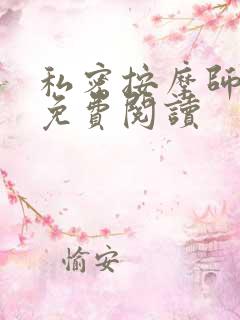 私密按摩師
免費閱讀
愉安